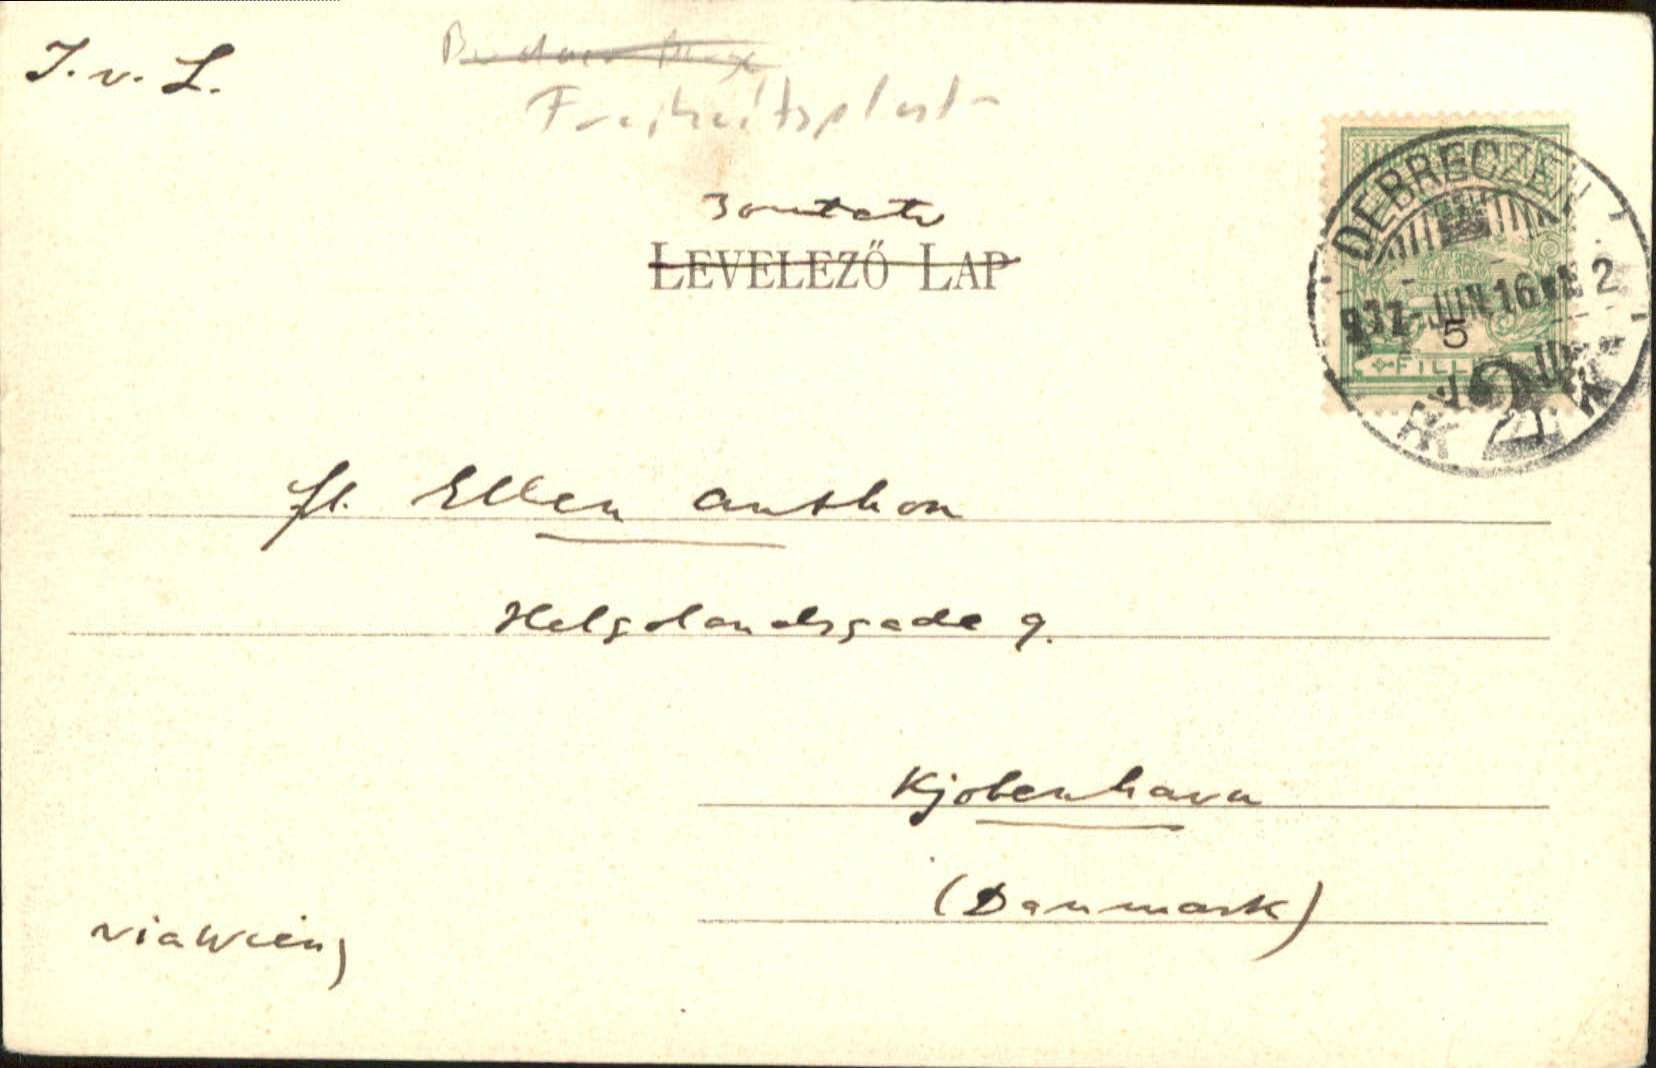 J. v. L.
Freiheitsplatz
LEVELEZŐ LAP
DEBRECZEN
JUN 16
2
5
FILL
fr. Ellen Anthon
Helgolandsgade 9.
Kjobenhavn
(Danmark)
via Wien